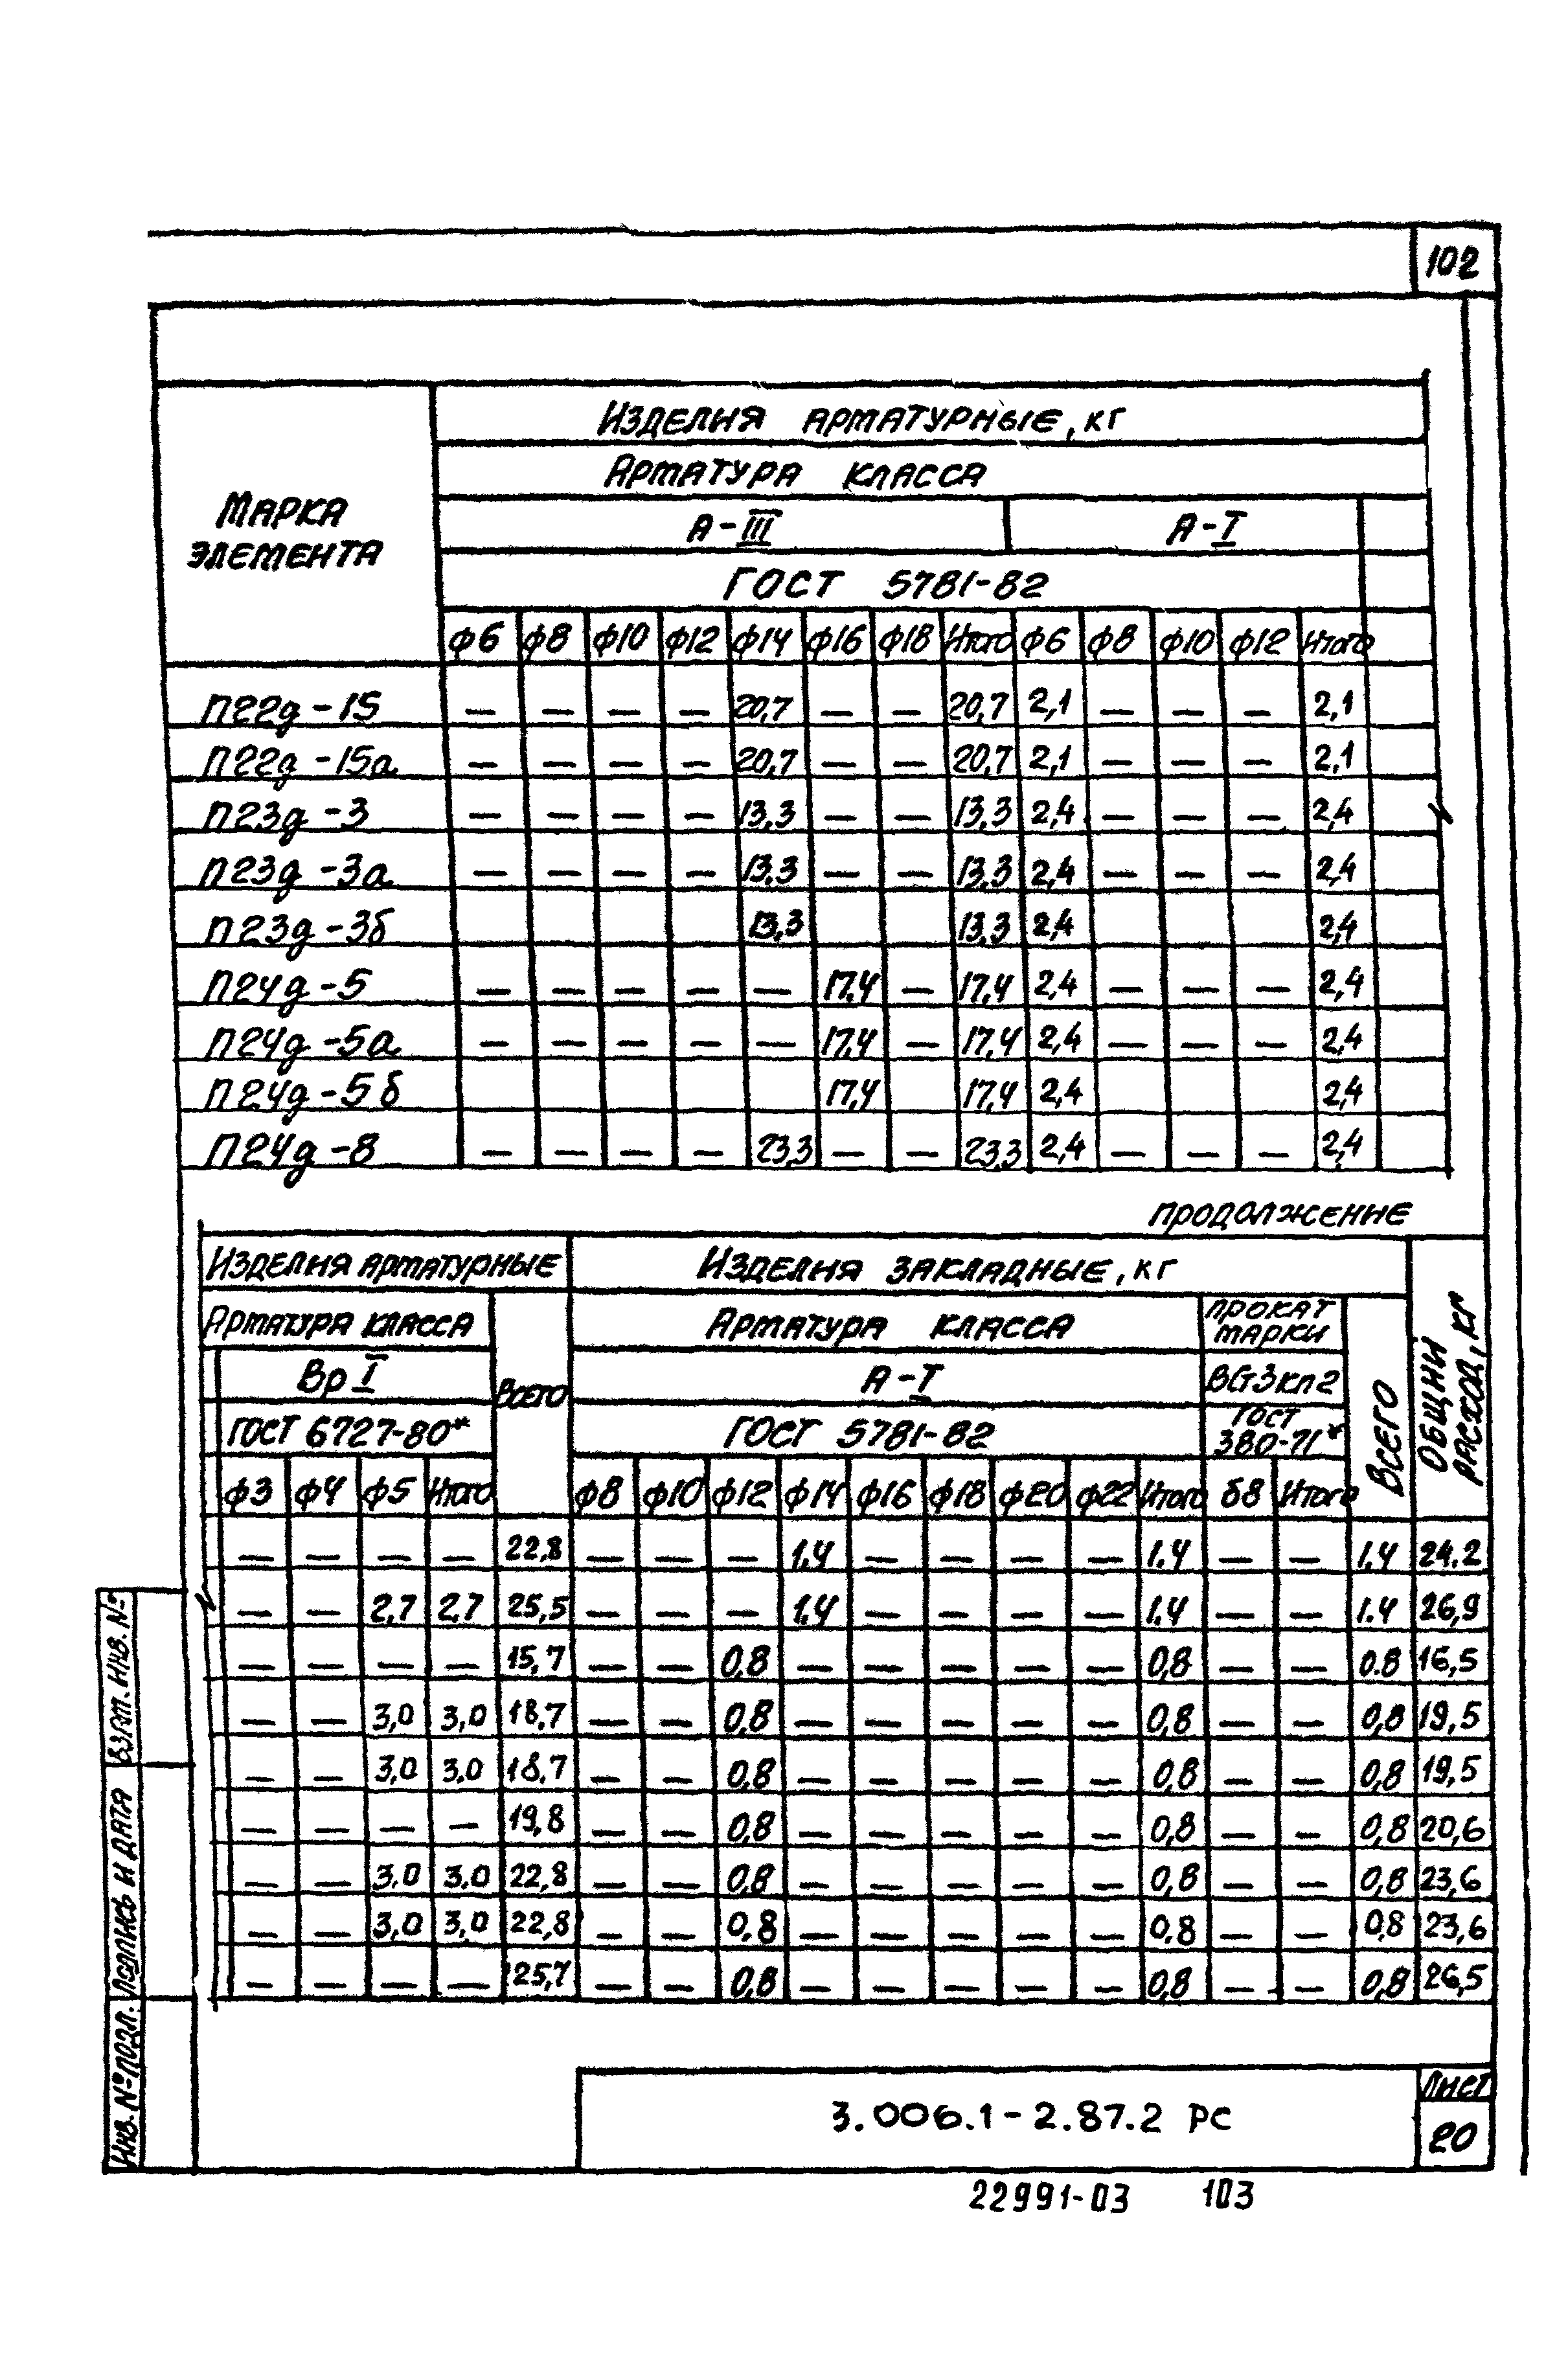 102
Изделия арматурные, кг
Арматура класса
Марка элемента
А-III А-I
ГОСТ 5781-82
ф6 ф8 ф10 ф12 ф14 ф16 ф18 Итого ф6 ф8 ф10 ф12 Итого
П22д-15 — — — — 20,7 — — 20,7 2,1 — — — 2,1
П22д-15а — — — — 20,7 — — 20,7 2,1 — — — 2,1
П23д-3 — — — — 13,3 — — 13,3 2,4 — — — 2,4
П23д-3а — — — — 13,3 — — 13,3 2,4 — — — 2,4
П23д-3б 13,3 13,3 2,4 2,4
П24д-5 — — — — — 17,4 — 17,4 2,4 — — — 2,4
П24д-5а — — — — — 17,4 — 17,4 2,4 — — — 2,4
П24д-5б 17,4 17,4 2,4 2,4
П24д-8 — — — — 23,3 — — 23,3 2,4 — — — 2,4
продолжение
Изделия арматурные Изделия закладные, кг Общий расход, кг
Арматура класса Всего Арматура класса Прокат марки Всего
Вр I А-I ВСт3кп2
ГОСТ 6727-80* ГОСТ 5781-82 ГОСТ 380-71*
ф3 ф4 ф5 Итого ф8 ф10 ф12 ф14 ф16 ф18 ф20 ф22 Итого δ8 Итого
— — — — 22,8 — — — 1.4 — — — — 1.4 — — 1.4 24.2
— — 2,7 2,7 25,5 — — — 1.4 — — — — 1.4 — — 1.4 26,9
— — — — 15,7 — — 0,8 — — — — — 0,8 — — 0.8 16,5
— — 3,0 3,0 18,7 — — 0,8 — — — — — 0,8 — — 0,8 19,5
— — 3,0 3,0 18,7 — — 0,8 — — — — — 0,8 — — 0,8 19,5
— — — — 19,8 — — 0,8 — — — — — 0,8 — — 0,8 20,6
— — 3,0 3,0 22,8 — — 0,8 — — — — — 0,8 — — 0,8 23,6
— — 3,0 3,0 22,8 — — 0,8 — — — — — 0,8 — — 0,8 23,6
— — — — 25,7 — — 0,8 — — — — — 0,8 — — 0,8 26,5
Взам. инв. №
Подпись и дата
Инв. № подл.
3.006.1-2.87.2 РС
Лист
20
22991-03 103